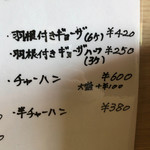 ・羽根付きギョーザ(6ケ) ¥420
・羽根付きギョーザハーフ ¥250
(3ケ)
・チャーハン ¥600
大盛 +¥100
・半チャーハン ¥380